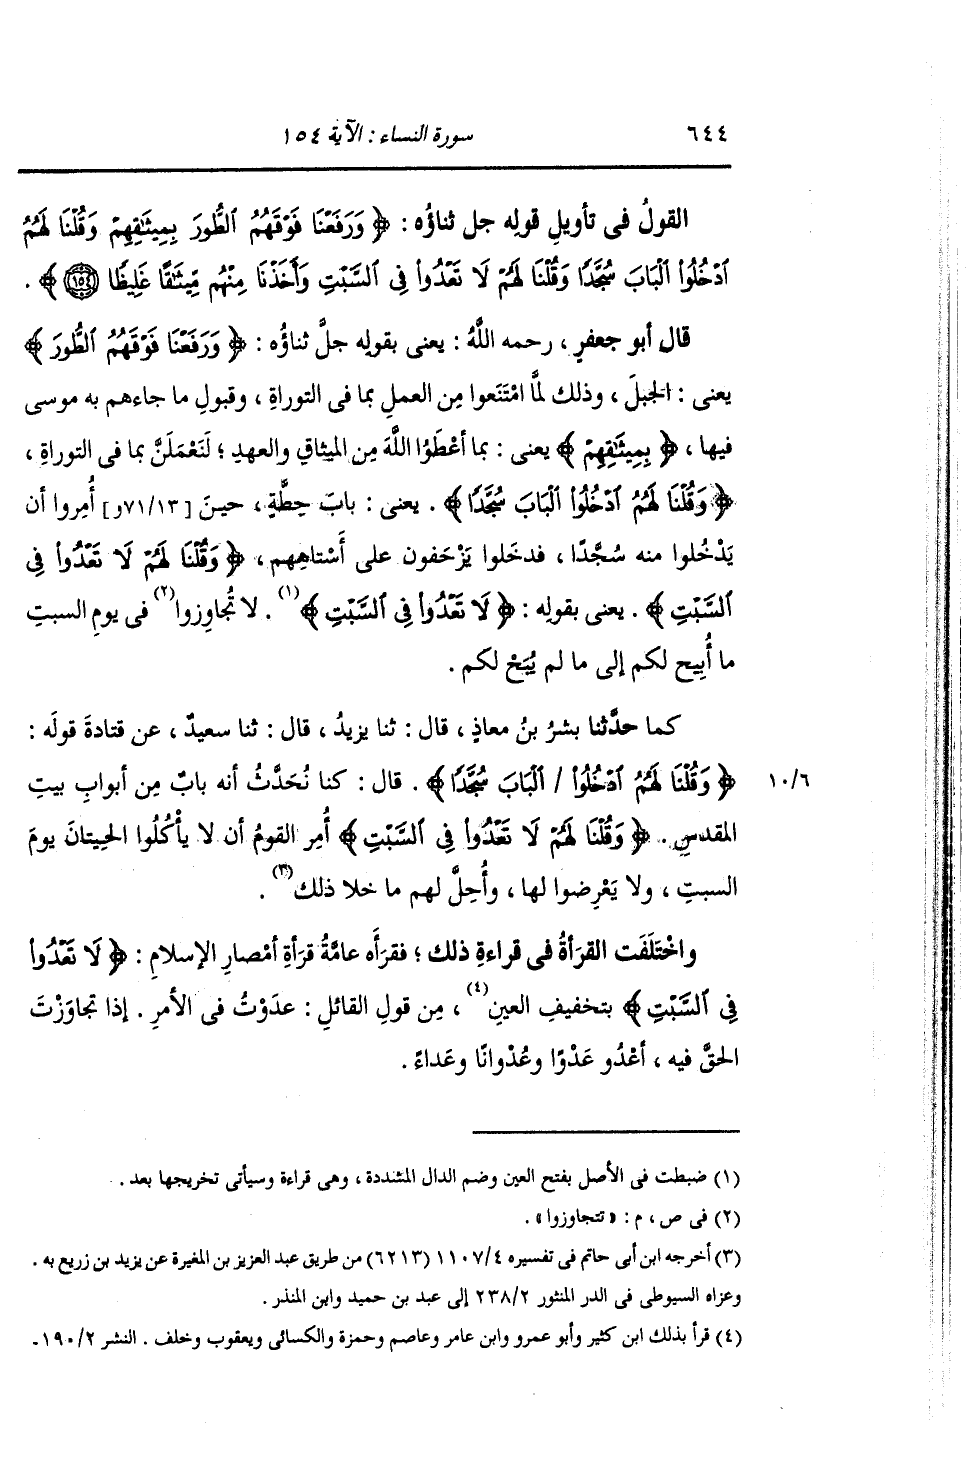 ٦٤٤ سورة النساء : الآية ١٥٤
القولُ فى تأويلِ قولِه جل ثناؤُه : ﴿ وَرَفَعْنَا فَوْقَهُمُ ٱلطُّورَ بِمِيثَٰقِهِمْ وَقُلْنَا لَهُمُ
ٱدْخُلُوا۟ ٱلْبَابَ سُجَّدًا وَقُلْنَا لَهُمْ لَا تَعْدُوا۟ فِى ٱلسَّبْتِ وَأَخَذْنَا مِنْهُم مِّيثَٰقًا غَلِيظًا ١٥٤ ﴾ .
قال أبو جعفرٍ ، رحمه اللَّهُ : يعنى بقولِه جلَّ ثناؤُه : ﴿ وَرَفَعْنَا فَوْقَهُمُ ٱلطُّورَ ﴾
يعنى : الجبلَ ، وذلك لمَّا امْتَنَعوا مِن العملِ بما فى التوراةِ ، وقبولِ ما جاءهم به موسى
فيها ، ﴿ بِمِيثَٰقِهِمْ ﴾ يعنى : بما أعْطَوُا اللَّهَ مِن الميثاقِ والعهدِ ؛ لَنَعْمَلَنَّ بما فى التوراةِ ،
﴿ وَقُلْنَا لَهُمُ ٱدْخُلُوا۟ ٱلْبَابَ سُجَّدًا ﴾ . يعنى : بابَ حِطَّةٍ ، حينَ [٧١/١٣و] أُمِروا أن
يَدْخُلوا منه سُجَّدًا ، فدخَلوا يَزْحَفون على أَسْتاهِهم ، ﴿ وَقُلْنَا لَهُمْ لَا تَعْدُوا۟ فِى
ٱلسَّبْتِ ﴾ . يعنى بقولِه : ﴿ لَا تَعْدُوا۟ فِى ٱلسَّبْتِ ﴾(١) . لا تُجاوِزوا(٢) فى يومِ السبتِ
ما أُبِيح لكم إلى ما لم يُبَحْ لكم .
كما حدَّثنا بشرُ بنُ معاذٍ ، قال : ثنا يزيدُ ، قال : ثنا سعيدٌ ، عن قتادةَ قولَه :
﴿ وَقُلْنَا لَهُمُ ٱدْخُلُوا۟ / ٱلْبَابَ سُجَّدًا ﴾ . قال : كنا نُحَدَّثُ أنه بابٌ مِن أبوابِ بيتِ ١٠/٦
المقدسِ . ﴿ وَقُلْنَا لَهُمْ لَا تَعْدُوا۟ فِى ٱلسَّبْتِ ﴾ أُمِر القومُ أن لا يأْكُلوا الحِيتانَ يومَ
السبتِ ، ولا يَعْرِضوا لها ، وأُحِلَّ لهم ما خلا ذلك(٣) .
واخْتَلَفَت القرأةُ فى قراءةِ ذلك ؛ فقرَأَه عامَّةُ قرَأةِ أمْصارِ الإسلامِ : ﴿ لَا تَعْدُوا۟
فِى ٱلسَّبْتِ ﴾ بتخفيفِ العينِ(٤) ، مِن قولِ القائلِ : عدَوْتُ فى الأمرِ . إذا تجاوَزْتَ
الحقَّ فيه ، أعْدُو عَدْوًا وعُدْوانًا وعَداءً .
(١) ضبطت فى الأصل بفتح العين وضم الدال المشددة ، وهى قراءة وسيأتى تخريجها بعد .
(٢) فى ص ، م : « تتجاوزوا » .
(٣) أخرجه ابن أبى حاتم فى تفسيره ١١٠٧/٤ (٦٢١٣) من طريق عبد العزيز بن المغيرة عن يزيد بن زريع به .
وعزاه السيوطى فى الدر المنثور ٢٣٨/٢ إلى عبد بن حميد وابن المنذر .
(٤) قرأ بذلك ابن كثير وأبو عمرو وابن عامر وعاصم وحمزة والكسائى ويعقوب وخلف . النشر ١٩٠/٢ .